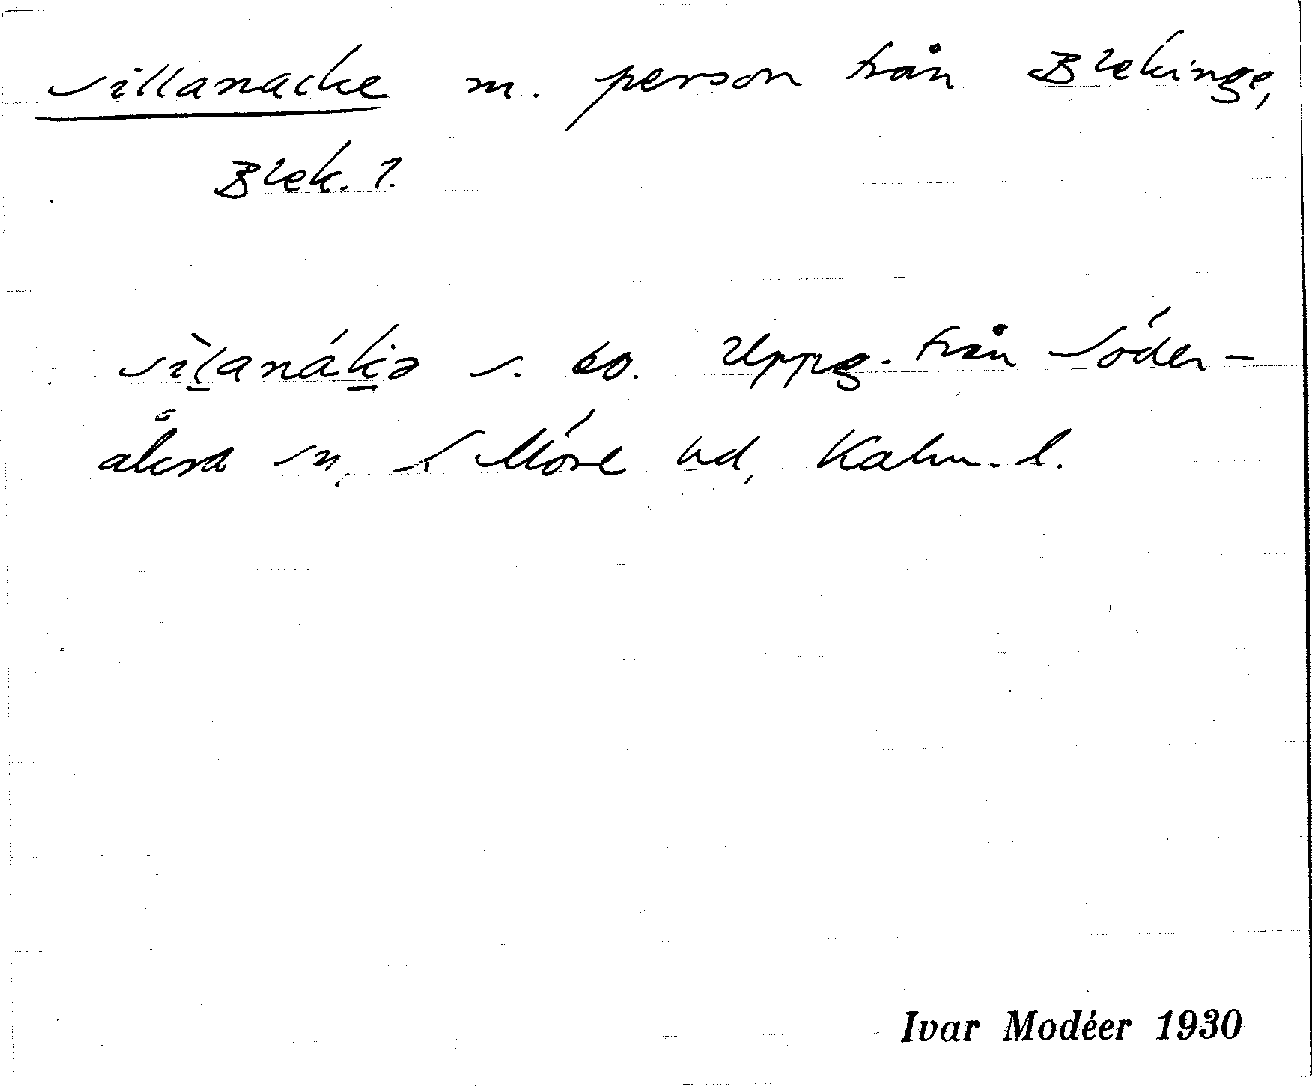 sillanacke m. person från Blekinge,
Blek. l.
sìl̲anák̲ə s. bo. Uppg. från Söder-
åkra sn, S Möre hd, Kalm. l.
Ivar Modéer 1930